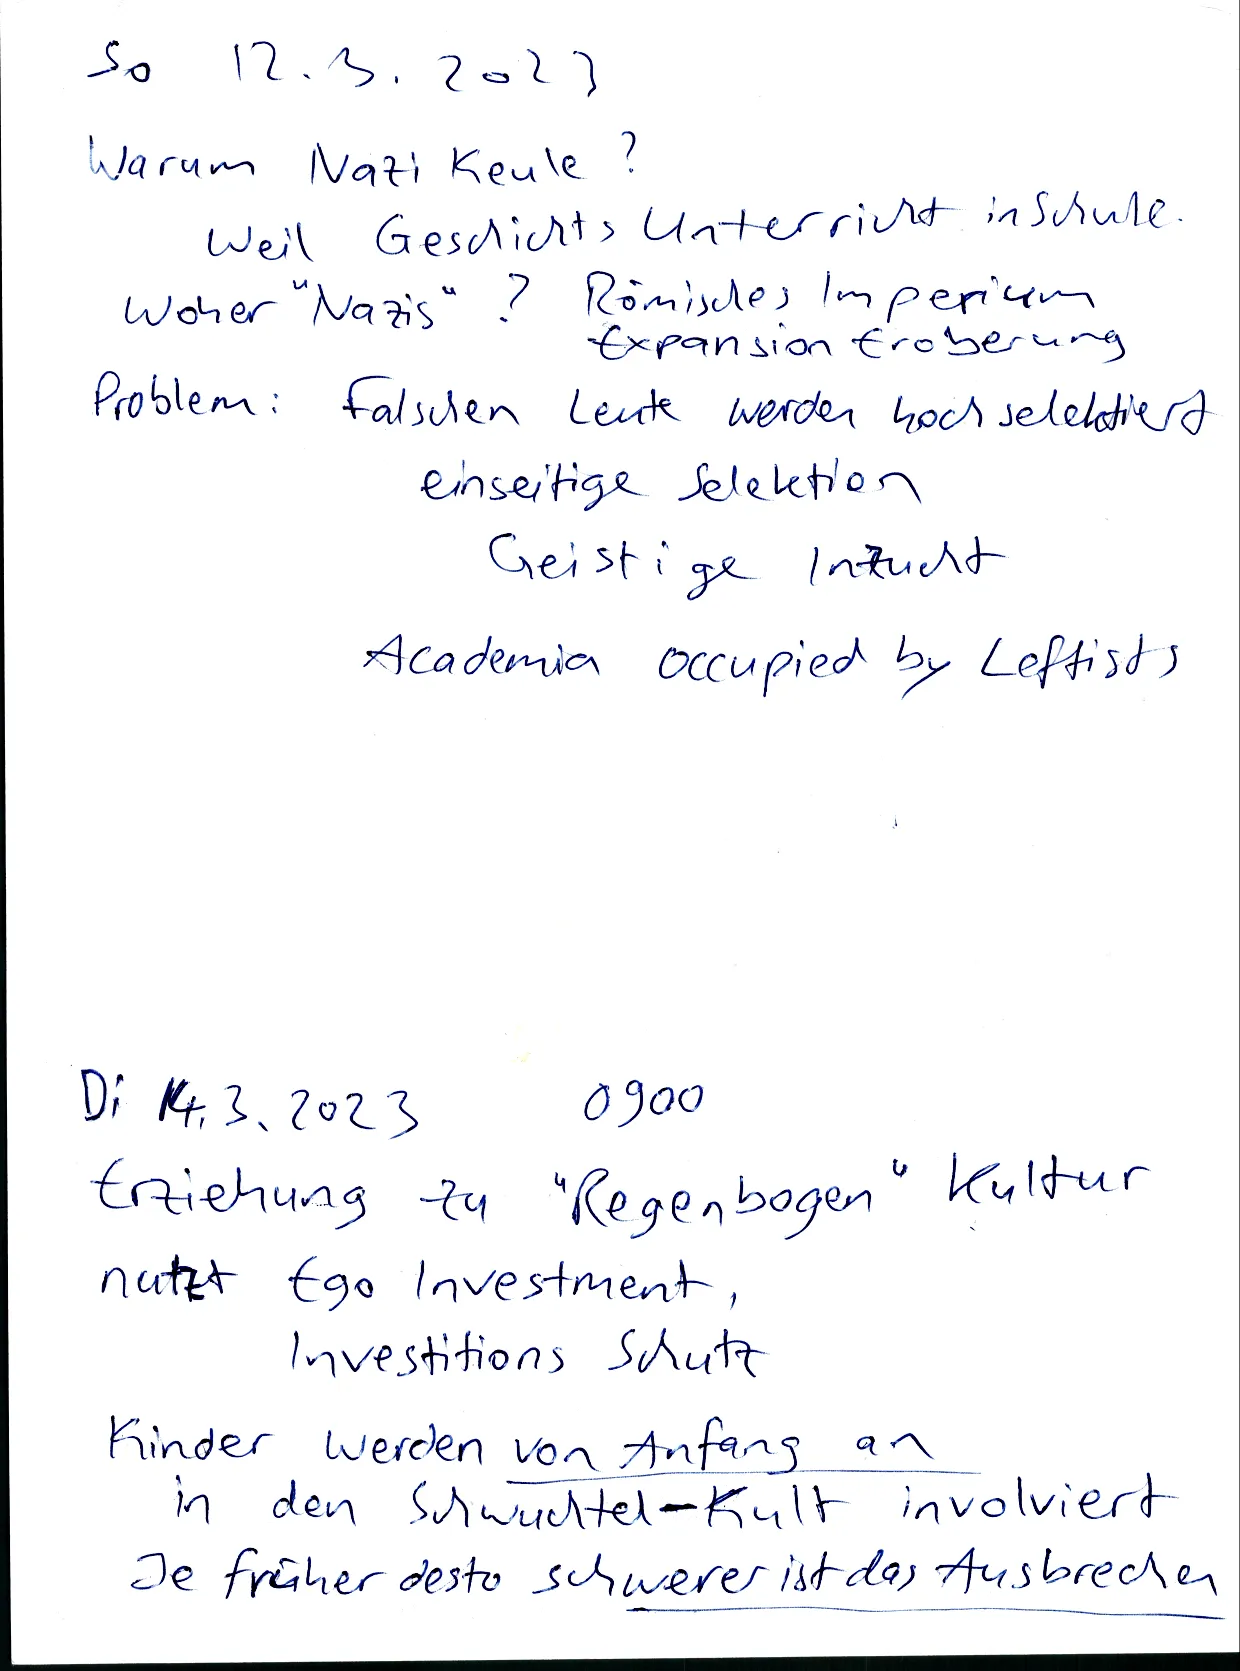 So 12.3.2023
Warum Nazi Keule?
Weil Geschichts Unterricht in Schule.
Woher "Nazis"? Römisches Imperium
Expansion Eroberung
Problem: Falschen Leute werden hoch selektiert
einseitige Selektion
Geistige Inzucht
Academia occupied by Leftists
Di 14.3.2023 0900
Erziehung zu "Regenbogen" Kultur
nutzt Ego Investment,
Investitions Schutz
Kinder werden von Anfang an
in den Schwuchtel-Kult involviert
Je früher desto schwerer ist das Ausbrechen